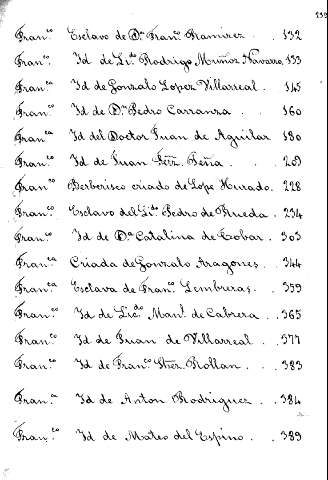 Fran.co Esclavo de D.n Fran.co Ramirez . . 132
Fran.co Id de Li.do Rodrigo Muñoz Navarro, 133
Fran.ca Id de Gonzalo Lopez Villarreal . 145
Fran.co Id de D.n Pedro Carranza . . 160
Fran.ca Id del Doctor Juan de Aguilar 180
Fran.co Id de Juan Frz. Peña . . 209
Fran.co Berberisco criado de Lope Hurado. 228
Fran.co Esclavo del Li.do Pedro de Rueda . 234
Fran.co Id de D.a Catalina de Tobar . 303
Fran.ca Criada de Gonzalo Aragones . . 344
Fran.ca Esclava de Fran.co Lembreras . . 359
Fran.co Id de Lic.do Man.l de Cabrera . . 365
Fran.co Id de Juan de Villarreal . . 377
Fran.co Id de Fran.co Rollan . . 383
Fran.co Id de Anton Rodriguez . . 384
Fran.co Id de Mateo del Espino . . 389